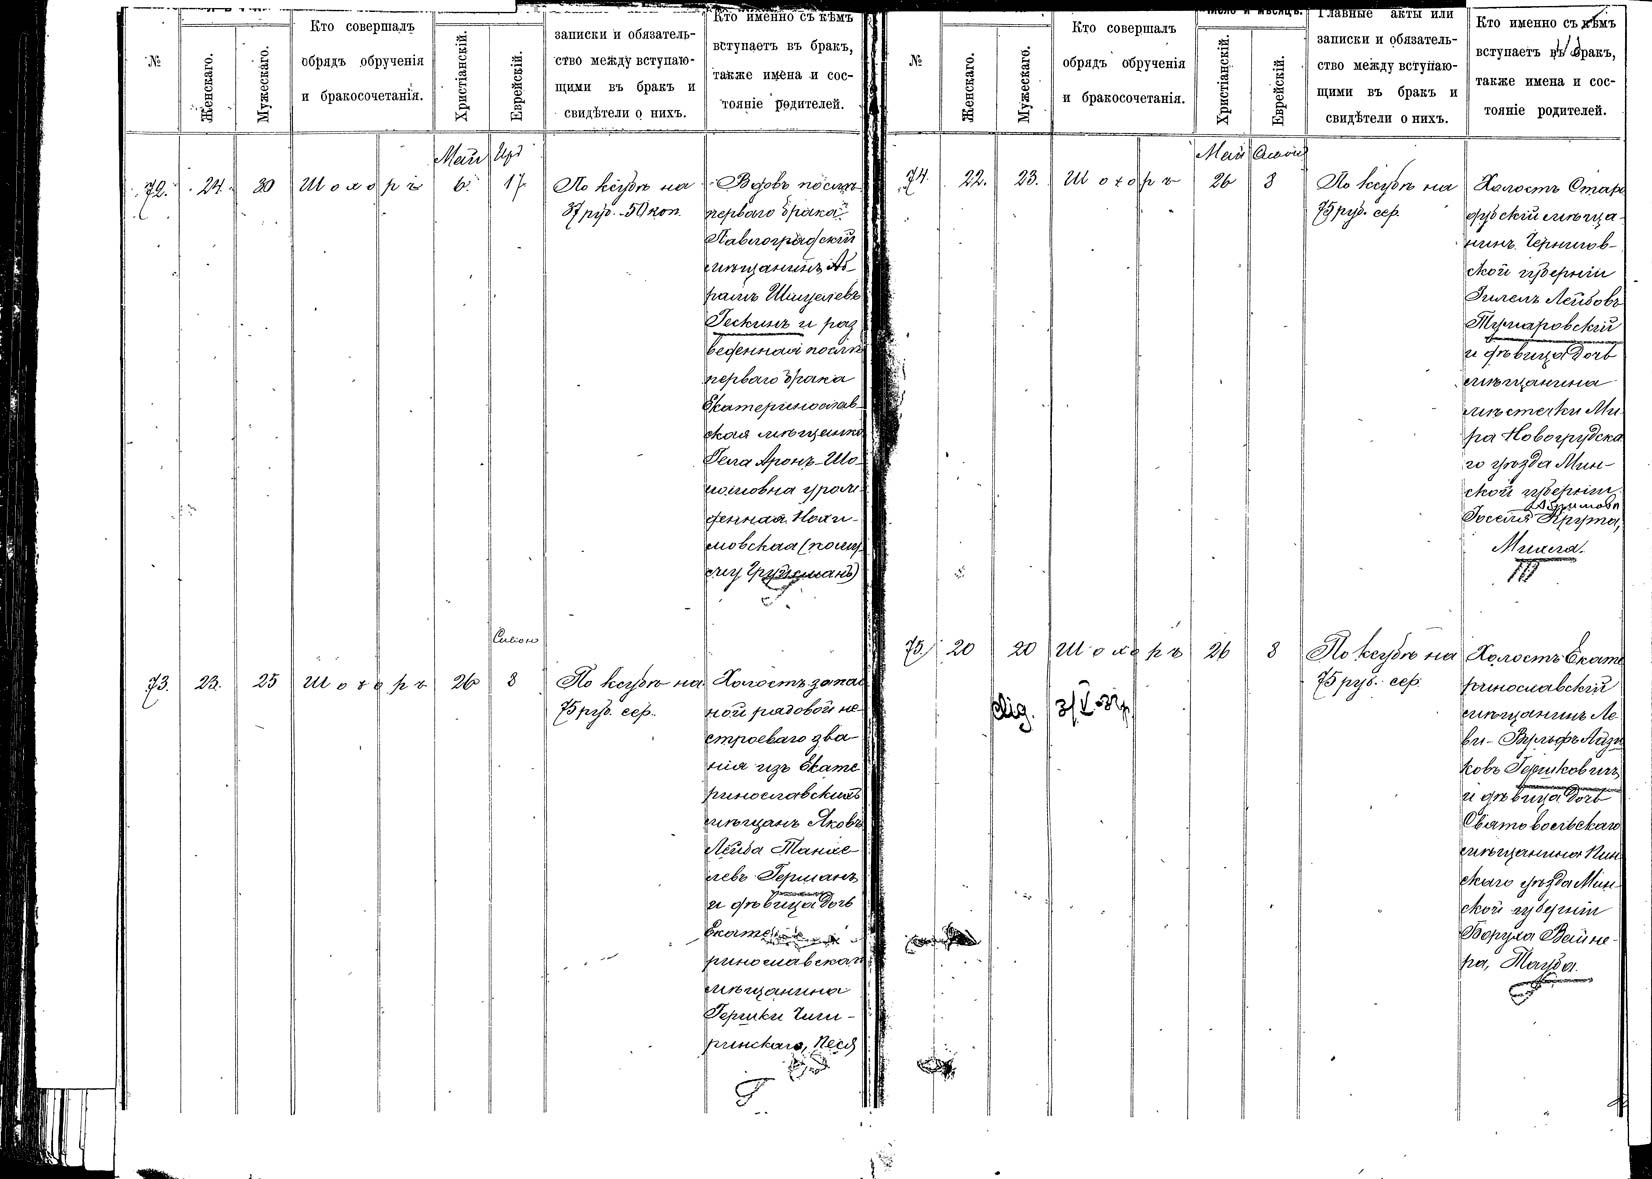 №
Женскаго.
Мужескаго.
Кто совершалъ
обрядъ обрученія
и бракосочетанія.
Христіанскій.
Еврейскій.
записки и обязатель-
ство между вступаю-
щими въ бракъ и
свидѣтели о нихъ.
Кто именно съ кѣмъ
вступаетъ въ бракъ,
также имена и сос-
тояніе родителей.
Май Иръ
72. 24. 30 Шохоръ 6 17 По ксубѣ на
37 руб. 50 коп.
Вдовъ послѣ
перваго брака
Павлоградскій
мѣщанинъ Аб-
рамъ Шмуелевъ
Гескинъ и раз
веденная послѣ
перваго брака
Екатеринослав-
ская мѣщанка
Гела Аронъ-Шо-
ломовна урож-
денная Нохи-
мовская (по му-
жу
Сивонъ
73. 23. 25 Шохоръ 26 8 По ксубѣ на
75 руб. сер.
Холостъ запас
ной рядовой не-
строеваго зва-
нія изъ Екате
ринославскихъ
мѣщанъ Яковъ
Лейба Танхе-
левъ Германъ
и дѣвица дочь
Екате
ринославскаго
мѣщанина
Гершки Чиги-
ринскаго, Песя
№
Женскаго.
Мужескаго.
Кто совершалъ
обрядъ обрученія
и бракосочетанія.
Число и мѣсяцъ.
Христіанскій.
Еврейскій.
Главные акты или
записки и обязатель-
ство между вступаю-
щими въ бракъ и
свидѣтели о нихъ.
Кто именно съ кѣмъ
вступаетъ въ бракъ,
также имена и сос-
тояніе родителей.
Май Сивонъ
74. 22. 23. Шохоръ 26 8 По ксубѣ на
75 руб. сер.
Холостъ Старо
дубскій мѣща-
нинъ Чернигов-
ской губерніи
Гилель Лейбовъ
Тумаровскій
и дѣвица дочь
мѣщанина
мѣстечки Ми-
ра Новогрудска
го уѣзда Мин-
ской губерніи
Абрамова
Іоселя Крута,
Михля.
75. 20 20 Шохоръ 26 8 По ксубѣ на
75 руб. сер.
Холостъ Екате
ринославскій
мѣщанинъ Ле
ви-Вульфъ Айзи
ковъ Гершковичъ
и дѣвица дочь
Святовольскаго
мѣщанина Пин-
скаго уѣзда Мин-
ской губерніи
Боруха Вайне-
ра, Тауба.